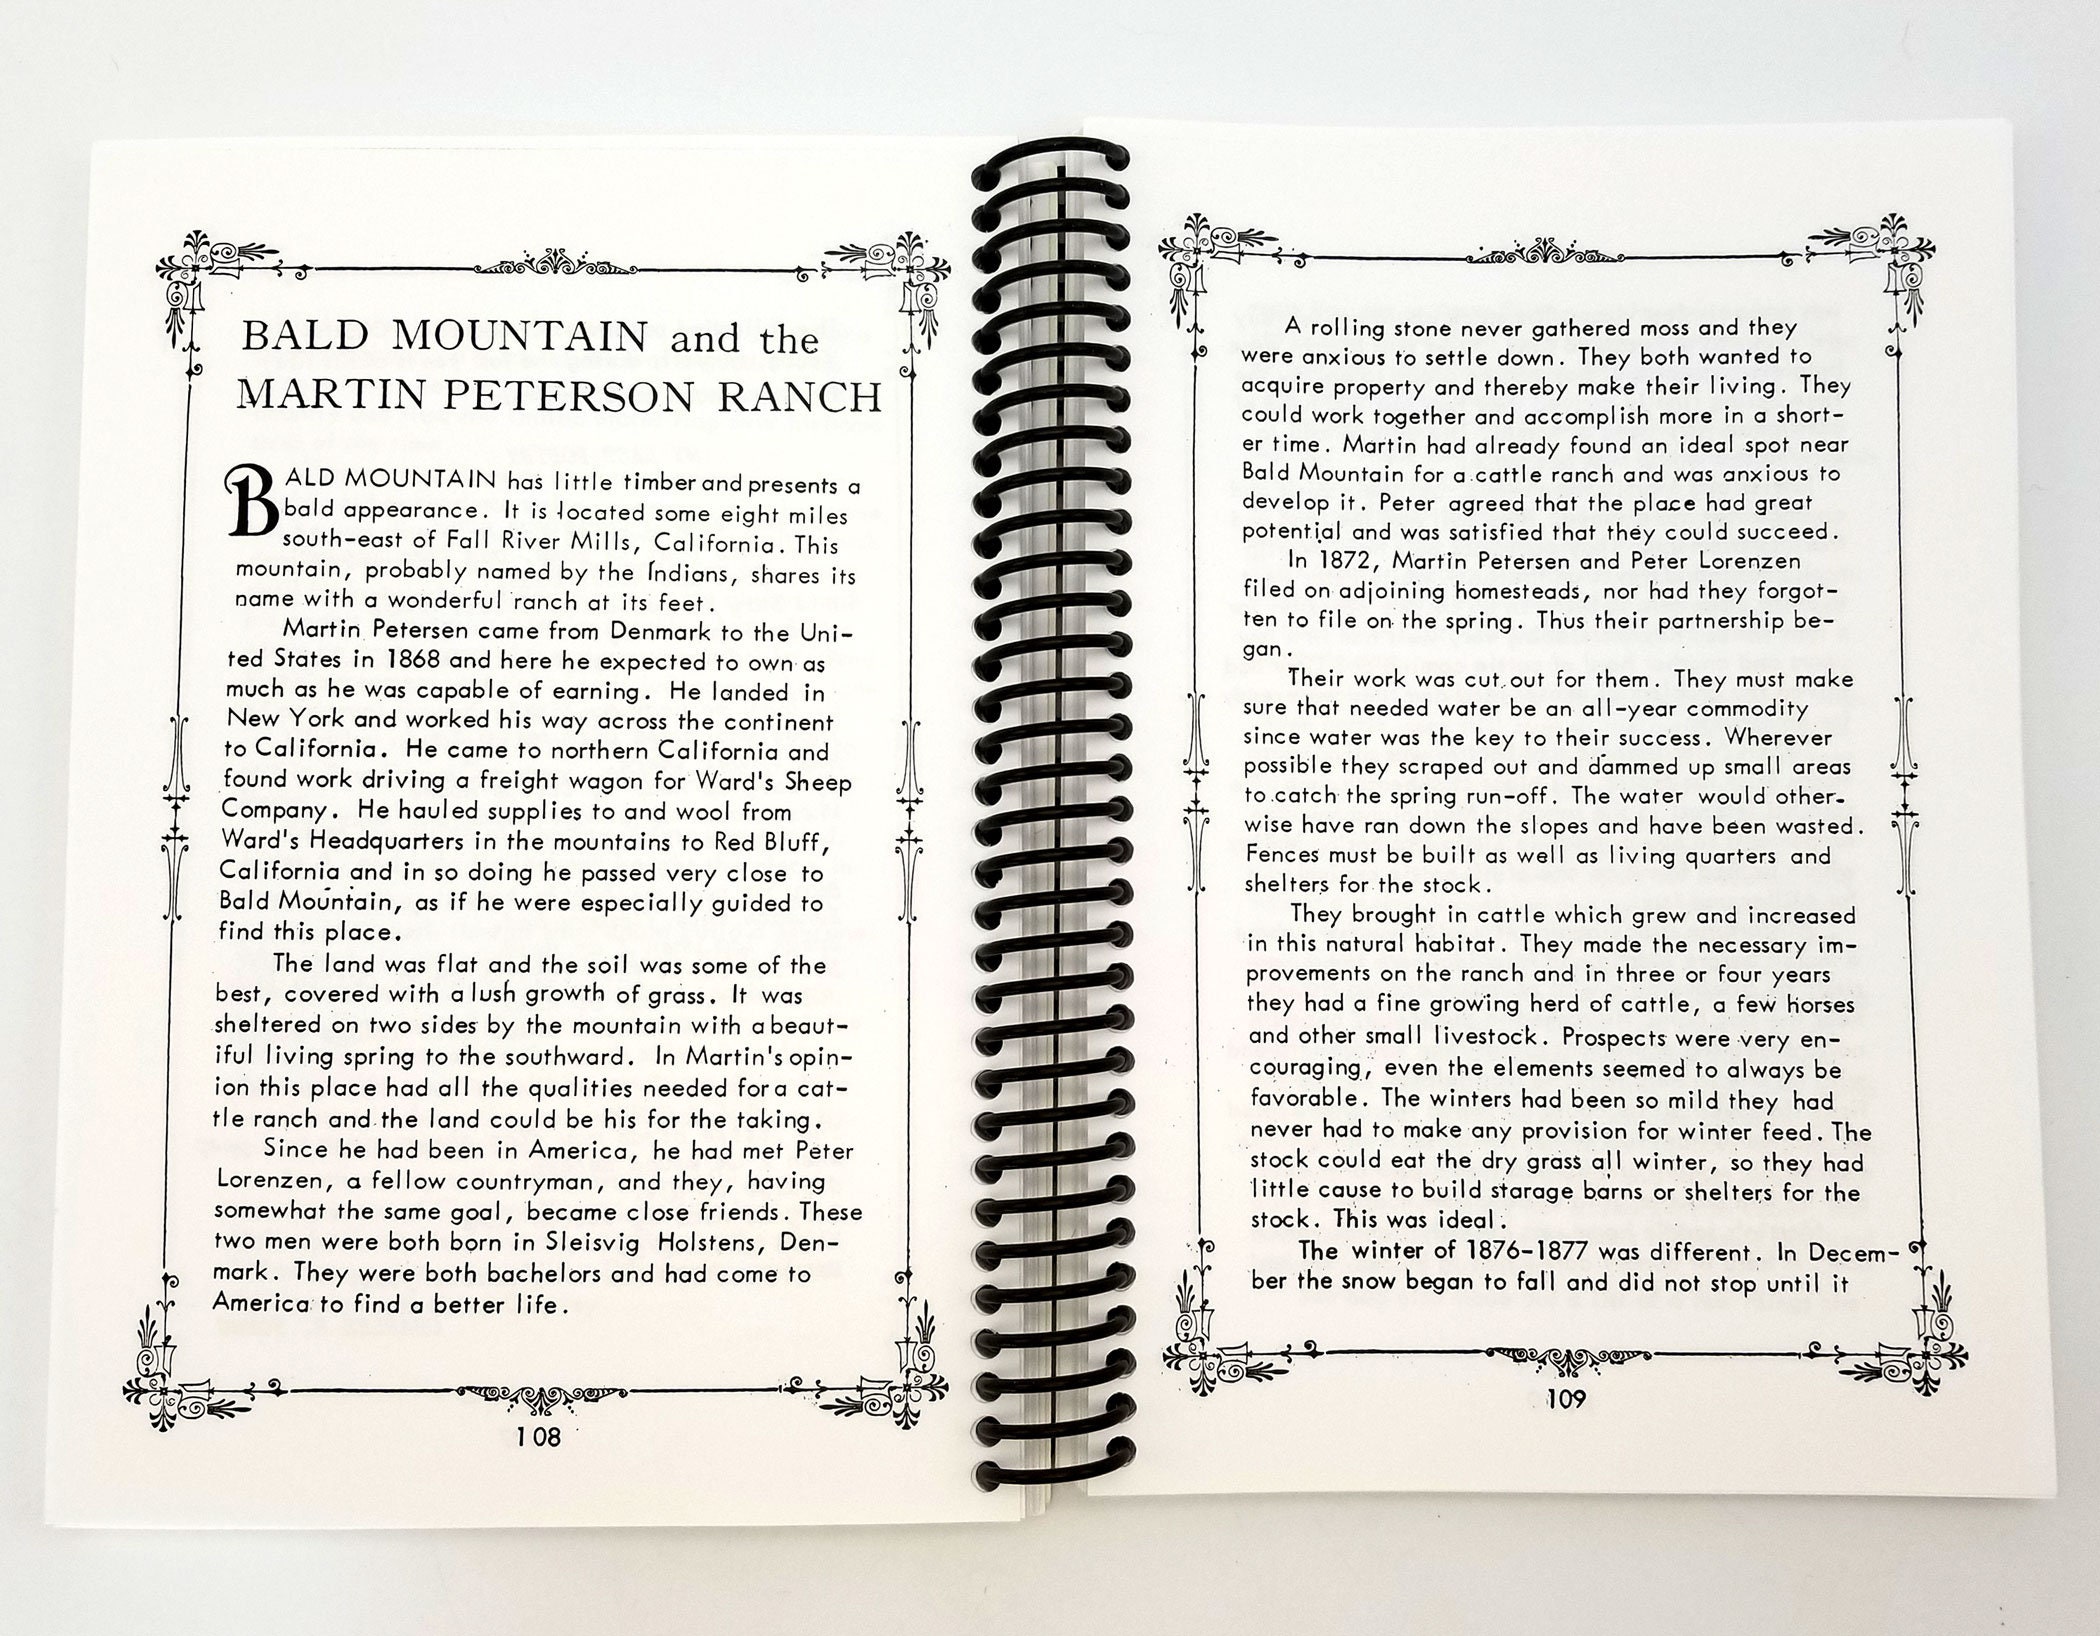 BALD MOUNTAIN and the
MARTIN PETERSON RANCH
BALD MOUNTAIN has little timber and presents a
bald appearance. It is located some eight miles
south-east of Fall River Mills, California. This
mountain, probably named by the Indians, shares its
name with a wonderful ranch at its feet.
Martin Petersen came from Denmark to the Uni-
ted States in 1868 and here he expected to own as
much as he was capable of earning. He landed in
New York and worked his way across the continent
to California. He came to northern California and
found work driving a freight wagon for Ward's Sheep
Company. He hauled supplies to and wool from
Ward's Headquarters in the mountains to Red Bluff,
California and in so doing he passed very close to
Bald Mountain, as if he were especially guided to
find this place.
The land was flat and the soil was some of the
best, covered with a lush growth of grass. It was
sheltered on two sides by the mountain with a beaut-
iful living spring to the southward. In Martin's opin-
ion this place had all the qualities needed for a cat-
tle ranch and the land could be his for the taking.
Since he had been in America, he had met Peter
Lorenzen, a fellow countryman, and they, having
somewhat the same goal, became close friends. These
two men were both born in Sleisvig Holstens, Den-
mark. They were both bachelors and had come to
America to find a better life.
108
A rolling stone never gathered moss and they
were anxious to settle down. They both wanted to
acquire property and thereby make their living. They
could work together and accomplish more in a short-
er time. Martin had already found an ideal spot near
Bald Mountain for a cattle ranch and was anxious to
develop it. Peter agreed that the place had great
potential and was satisfied that they could succeed.
In 1872, Martin Petersen and Peter Lorenzen
filed on adjoining homesteads, nor had they forgot-
ten to file on the spring. Thus their partnership be-
gan.
Their work was cut out for them. They must make
sure that needed water be an all-year commodity
since water was the key to their success. Wherever
possible they scraped out and dammed up small areas
to catch the spring run-off. The water would other-
wise have ran down the slopes and have been wasted.
Fences must be built as well as living quarters and
shelters for the stock.
They brought in cattle which grew and increased
in this natural habitat. They made the necessary im-
provements on the ranch and in three or four years
they had a fine growing herd of cattle, a few horses
and other small livestock. Prospects were very en-
couraging, even the elements seemed to always be
favorable. The winters had been so mild they had
never had to make any provision for winter feed. The
stock could eat the dry grass all winter, so they had
little cause to build starage barns or shelters for the
stock. This was ideal.
The winter of 1876-1877 was different. In Decem-
ber the snow began to fall and did not stop until it
109